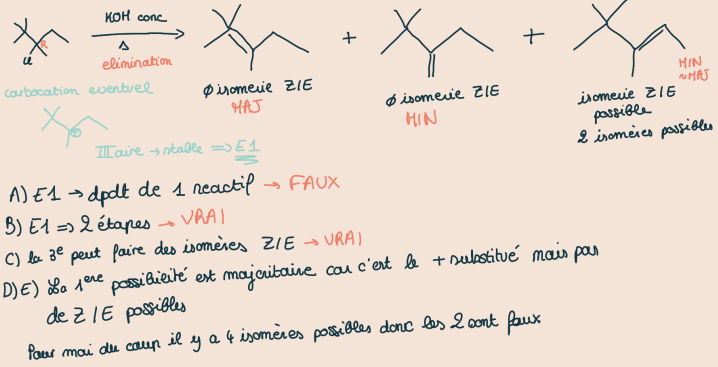 KOH conc
Δ
elimination
R
Cl
+
+
∅ isomerie Z/E
MAJ
∅ isomerie Z/E
MIN
MIN
~MAJ
isomerie Z/E
possible
2 isomères possibles
carbocation eventuel
⊕
IIIaire → stable => E1
A) E1 → dpdt de 1 reactif → FAUX
B) E1 => 2 étapes → VRAI
C) la 3e peut faire des isomères Z/E → VRAI
D)E) La 1ere possibilité est majoritaire car c'est le + substitué mais pas
de Z/E possibles
Pour moi du coup il y a 4 isomères possibles donc les 2 sont faux